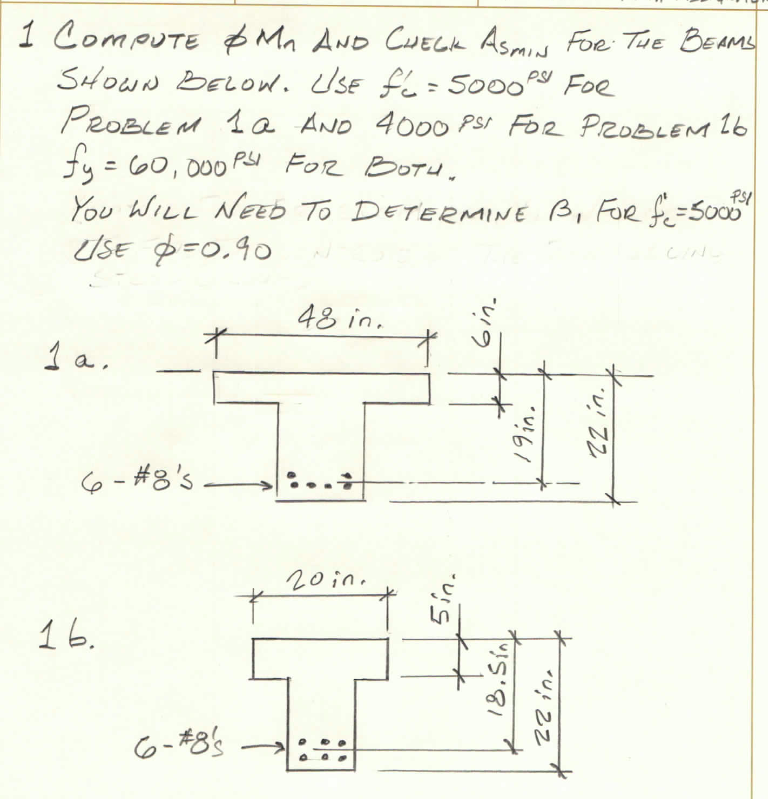 1 COMPUTE φMn AND CHECK ASMIN FOR THE BEAMS
SHOWN BELOW. USE f'c = 5000 PSI FOR
PROBLEM 1a AND 4000 PSI FOR PROBLEM 1b
fy = 60,000 PSI FOR BOTH.
YOU WILL NEED TO DETERMINE β1 FOR f'c = 5000 PSI
USE φ = 0.90
1 a.
48 in.
6 in.
19 in.
22 in.
6 - #8's
1 b.
20 in.
5 in.
18.5 in
22 in.
6 - #8's